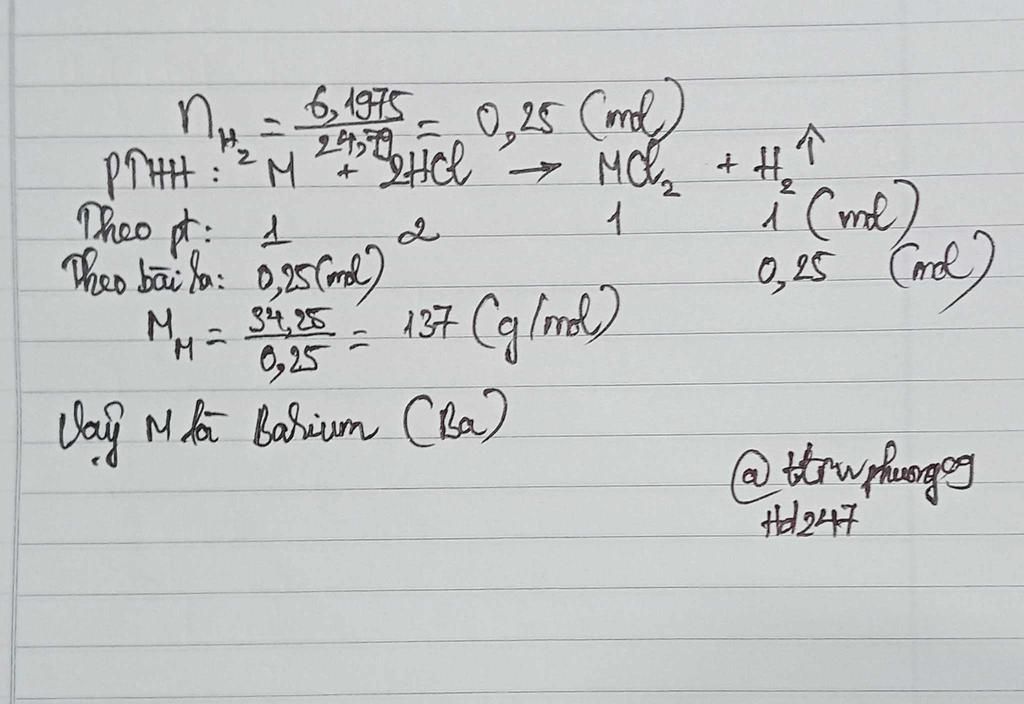 n_H₂ = 6,1975/24,79 = 0,25 (mol)
PTHH: M + 2HCl → MCl₂ + H₂↑
Theo pt: 1 2 1 1 (mol)
Theo bài ra: 0,25 (mol) 0,25 (mol)
M_M = 34,25/0,25 = 137 (g/mol)
Vậy M là Barium (Ba)
@ttrwphuong09
Hd247